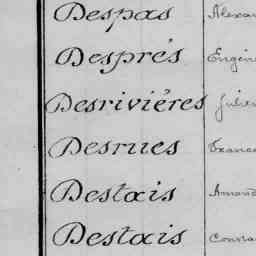 Despas Alexan
Després Eugène
Desrivières Julien
Desrues France
Destais Amand
Destais Consta